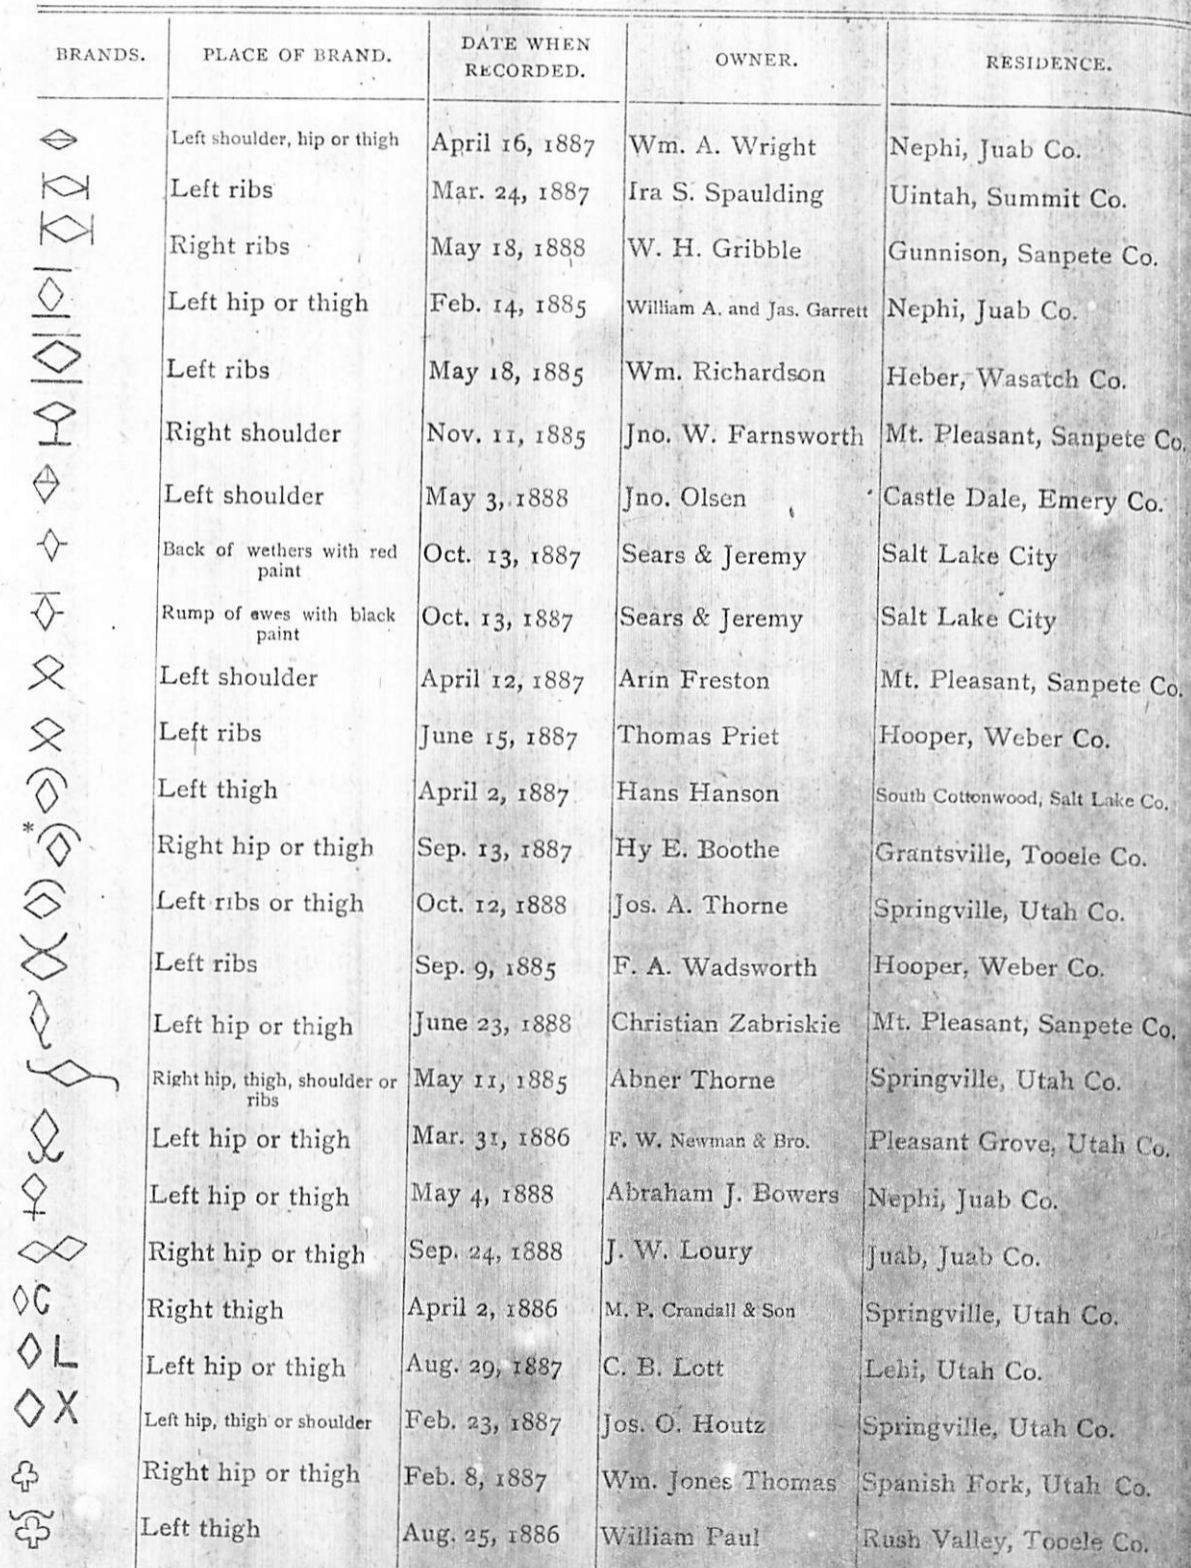 BRANDS. PLACE OF BRAND. DATE WHEN RECORDED. OWNER. RESIDENCE.
Left shoulder, hip or thigh April 16, 1887 Wm. A. Wright Nephi, Juab Co.
Left ribs Mar. 24, 1887 Ira S. Spaulding Uintah, Summit Co.
Right ribs May 18, 1888 W. H. Gribble Gunnison, Sanpete Co.
Left hip or thigh Feb. 14, 1885 William A. and Jas. Garrett Nephi, Juab Co.
Left ribs May 18, 1885 Wm. Richardson Heber, Wasatch Co.
Right shoulder Nov. 11, 1885 Jno. W. Farnsworth Mt. Pleasant, Sanpete Co.
Left shoulder May 3, 1888 Jno. Olsen Castle Dale, Emery Co.
Back of wethers with red paint Oct. 13, 1887 Sears & Jeremy Salt Lake City
Rump of ewes with black paint Oct. 13, 1887 Sears & Jeremy Salt Lake City
Left shoulder April 12, 1887 Arin Freston Mt. Pleasant, Sanpete Co.
Left ribs June 15, 1887 Thomas Priet Hooper, Weber Co.
Left thigh April 2, 1887 Hans Hanson South Cottonwood, Salt Lake Co.
* Right hip or thigh Sep. 13, 1887 Hy E. Boothe Grantsville, Tooele Co.
Left ribs or thigh Oct. 12, 1888 Jos. A. Thorne Springville, Utah Co.
Left ribs Sep. 9, 1885 F. A. Wadsworth Hooper, Weber Co.
Left hip or thigh June 23, 1888 Christian Zabriskie Mt. Pleasant, Sanpete Co.
Right hip, thigh, shoulder or ribs May 11, 1885 Abner Thorne Springville, Utah Co.
Left hip or thigh Mar. 31, 1886 F. W. Newman & Bro. Pleasant Grove, Utah Co.
Left hip or thigh May 4, 1888 Abraham J. Bowers Nephi, Juab Co.
Right hip or thigh Sep. 24, 1888 J. W. Loury Juab, Juab Co.
◊C Right thigh April 2, 1886 M. P. Crandall & Son Springville, Utah Co.
◊L Left hip or thigh Aug. 29, 1887 C. B. Lott Lehi, Utah Co.
◊X Left hip, thigh or shoulder Feb. 23, 1887 Jos. O. Houtz Springville, Utah Co.
Right hip or thigh Feb. 8, 1887 Wm. Jones Thomas Spanish Fork, Utah Co.
Left thigh Aug. 25, 1886 William Paul Rush Valley, Tooele Co.